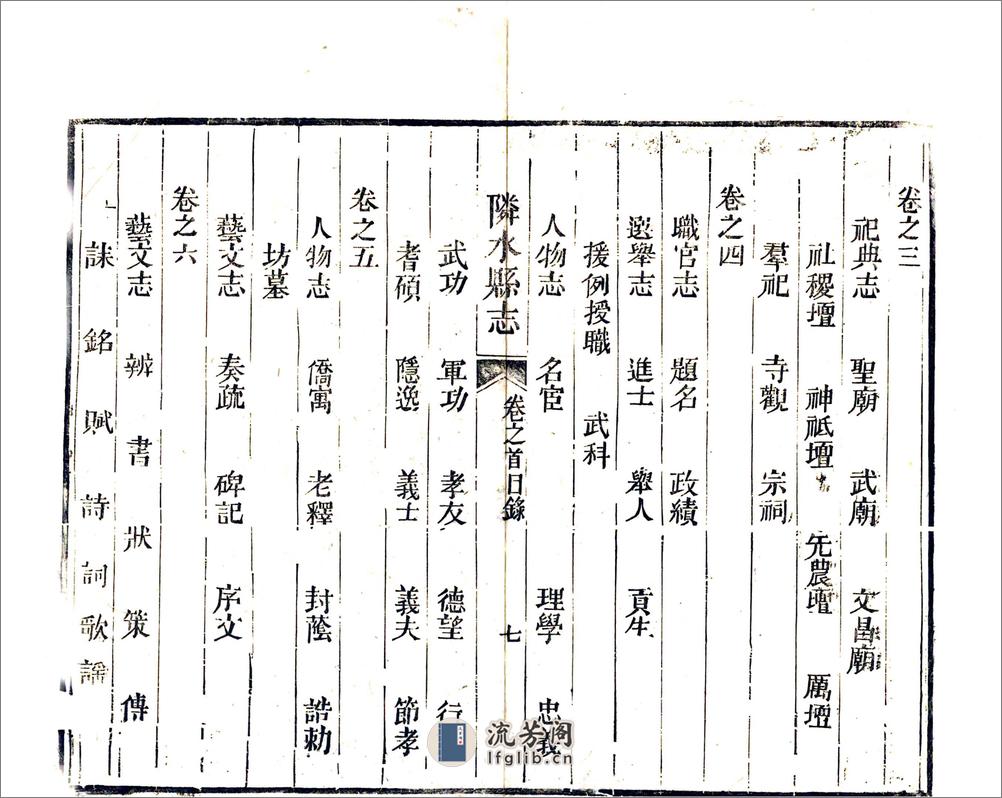 卷之三
祀典志 聖廟 武廟 文昌廟
社稷壇 神祗壇 先農壇 厲壇
羣祀 寺觀 宗祠
卷之四
職官志 題名 政績
選舉志 進士 舉人 貢生
援例授職 武科
人物志 名宦 理學 忠義
隣水縣志 卷之首目錄 七
武功 軍功 孝友 德望 行
耆碩 隱逸 義士 義夫 節孝
卷之五
人物志 僑寓 老釋 封蔭 誥勅
坊墓
藝文志 奏疏 碑記 序文
卷之六
藝文志 辨 書 狀 策 傳
誄 銘 賦 詩 詞 歌 謠
流芳阁
lfglib.cn